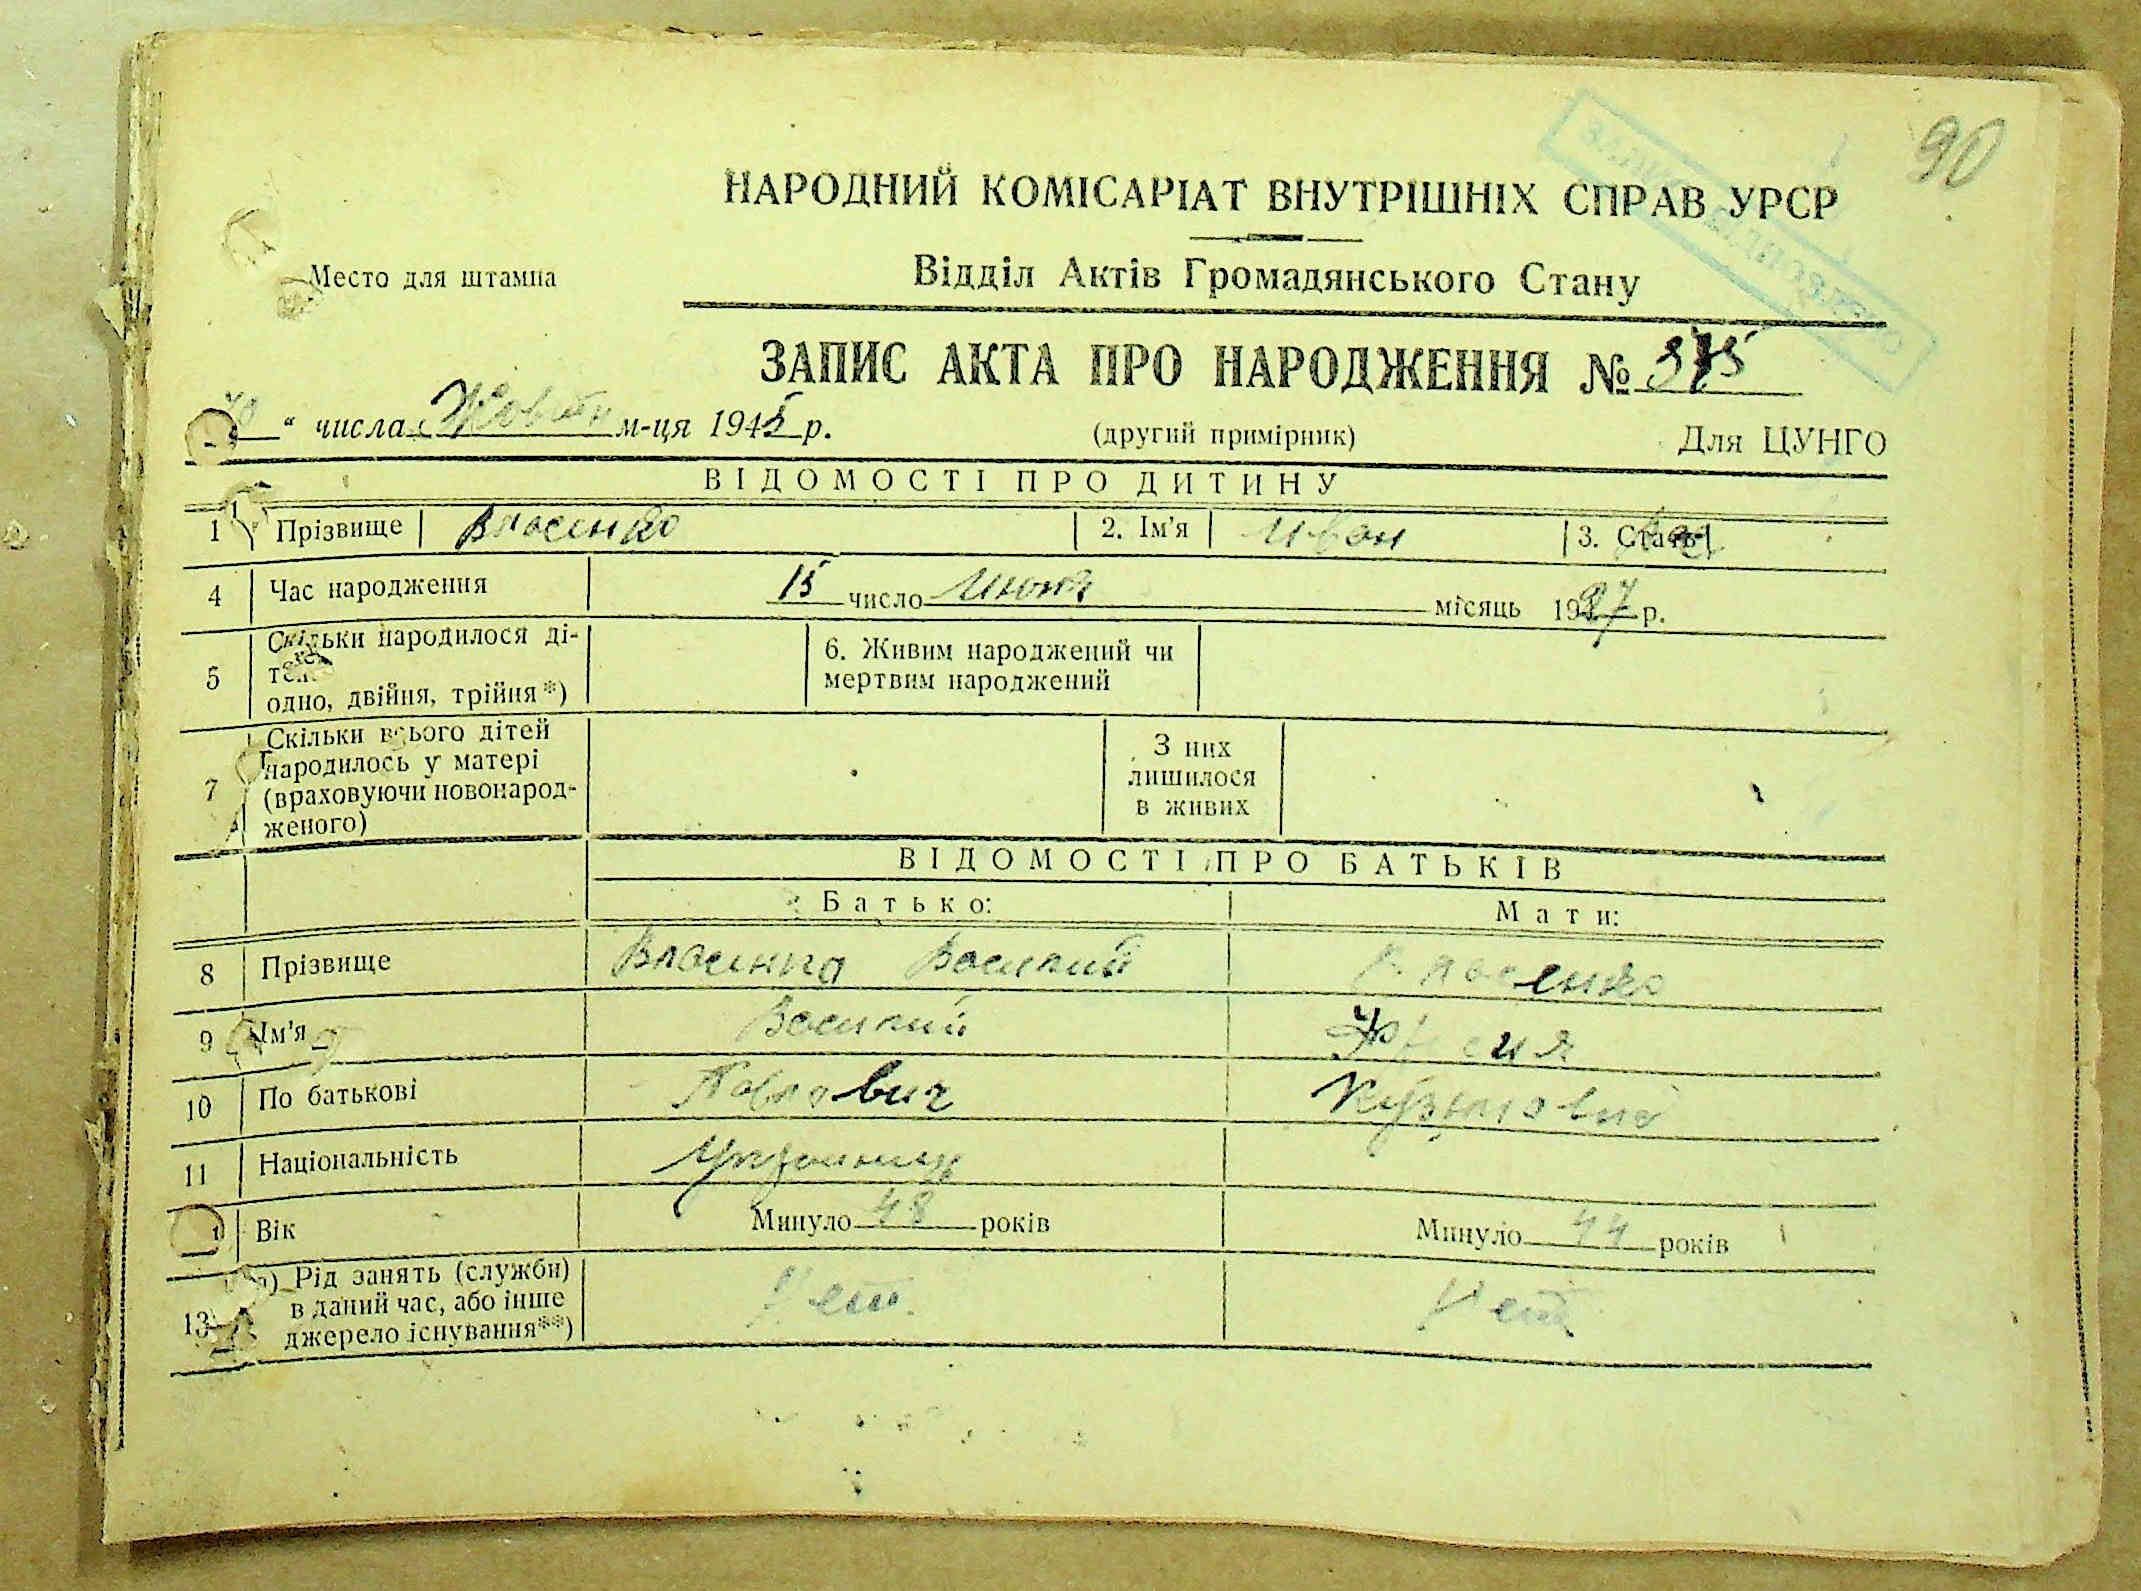 90
НАРОДНИЙ КОМІСАРІАТ ВНУТРІШНІХ СПРАВ УРСР
Место для штампа
Відділ Актів Громадянського Стану
ЗАПИС АКТА ПРО НАРОДЖЕННЯ №
“ числа Жовтн м-ця 1945 р.
(другий примірник)
Для ЦУНГО
ВІДОМОСТІ ПРО ДИТИНУ
1 Прізвище Власенко 2. Ім'я Иван 3. Стать
4 Час народження 15 число місяць 1927 р.
5 Скільки народилося ді-
одно, двійня, трійня*)
6. Живим народжений чи
мертвим народжений
7 Скільки всього дітей
народилось у матері
(враховуючи новонарод-
женого)
З них
лишилося
в живих
ВІДОМОСТІ ПРО БАТЬКІВ
Батько: Мати:
8 Прізвище Власенко Василий Власенко
9 Ім'я Василий
10 По батькові Павлович Кузьмовна
11 Національність
Вік Минуло 48 років Минуло 44 років
13 а) Рід занять (служби)
в даний час, або інше
джерело існування**)
Нет. Нет